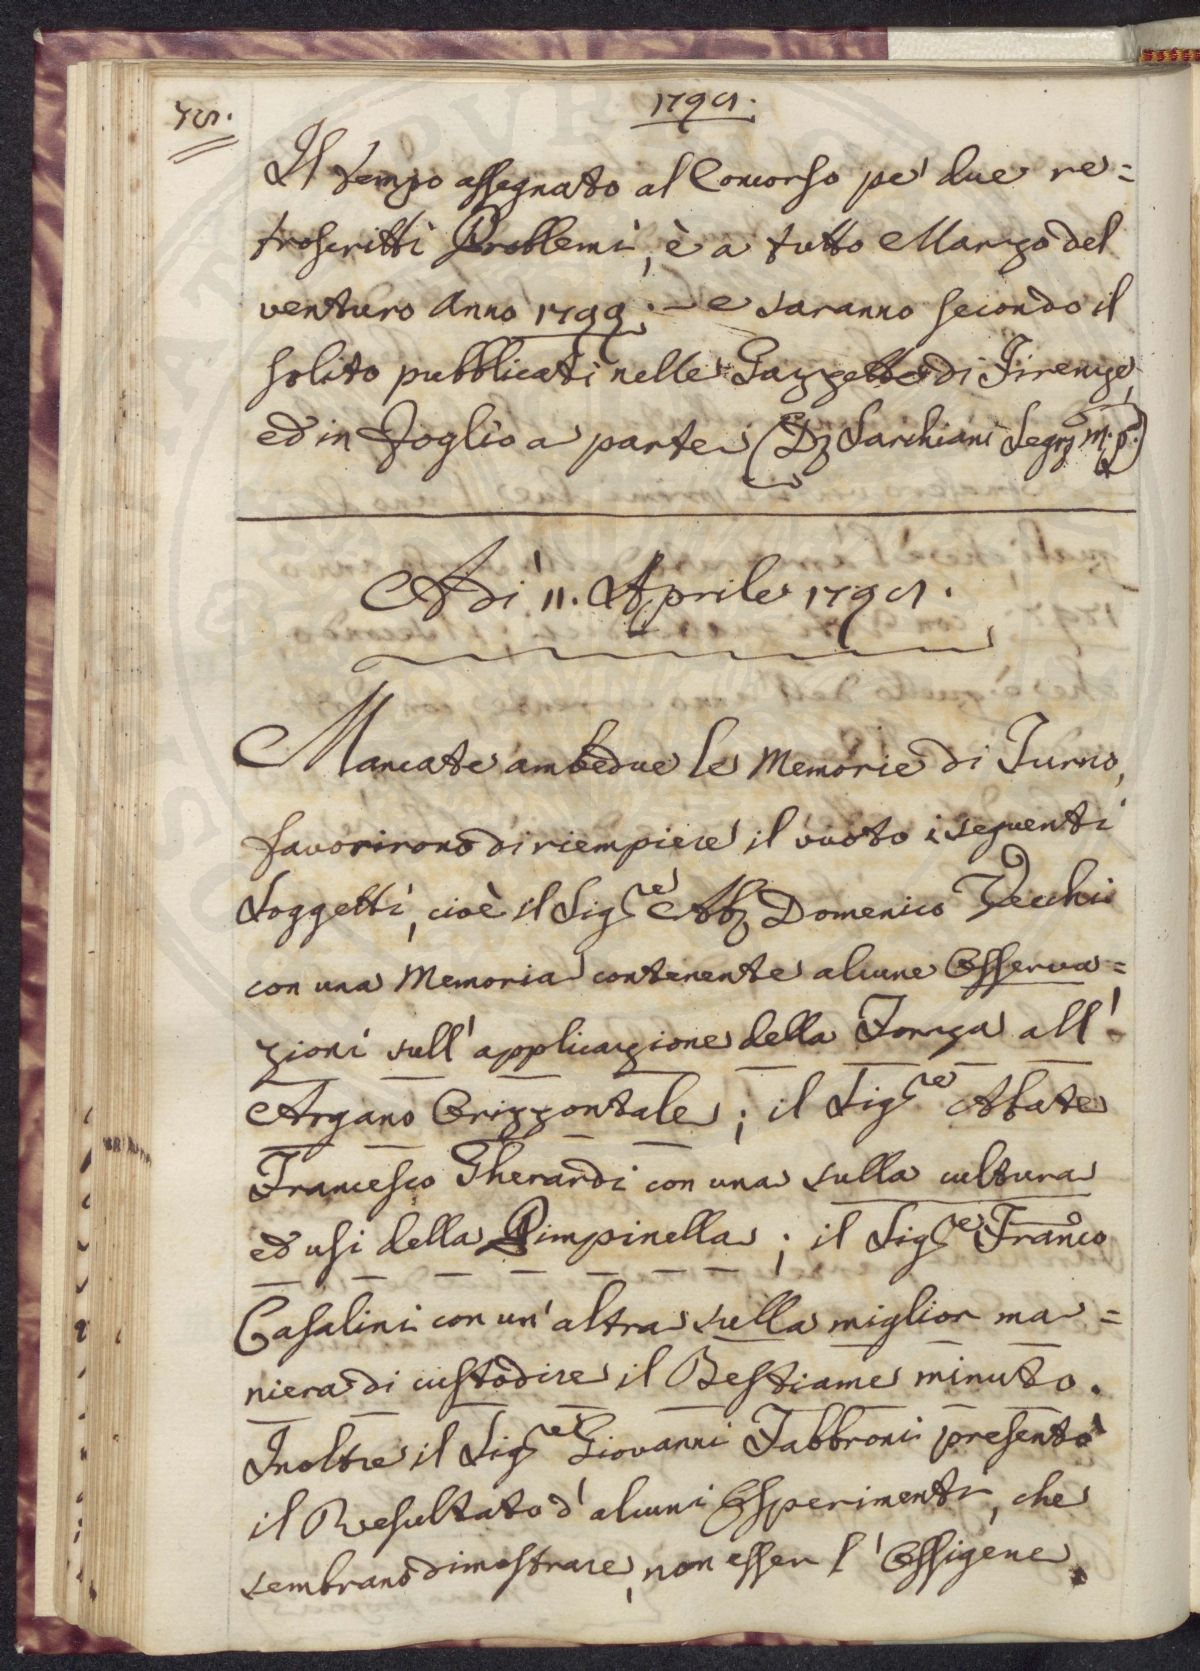 78.
1798.
Il tempo assegnato al Concorso pe' due re=
troscritti Problemi, è a tutto Marzo del
venturo Anno 1799. - e saranno secondo il
solito pubblicati nelle Gazzette di Firenze,
ed in foglio a parte (D. Sarchiani Segr. m. p.)
Adì 11. Aprile 1798.
Mancate ambedue le Memorie di Turno,
favorirono di riempiere il vuoto i seguenti
Soggetti, cioè il Sig.re Abb. Domenico Vecchi
con una Memoria contenente alcune Osserva=
zioni sull'applicazione della Forza all'
Argano Orizzontale; il Sig.re Abate
Francesco Gherardi con una sulla cultura
ed usi della Pimpinella; il Sig.re Fran.co
Casalini con un'altra sulla miglior ma=
niera di custodire il Bestiame minuto.
Inoltre il Sig.re Giovanni Fabbroni presentò
il Resultato d'alcuni Esperimenti, che
sembrano dimostrare, non esser l'Ossigene